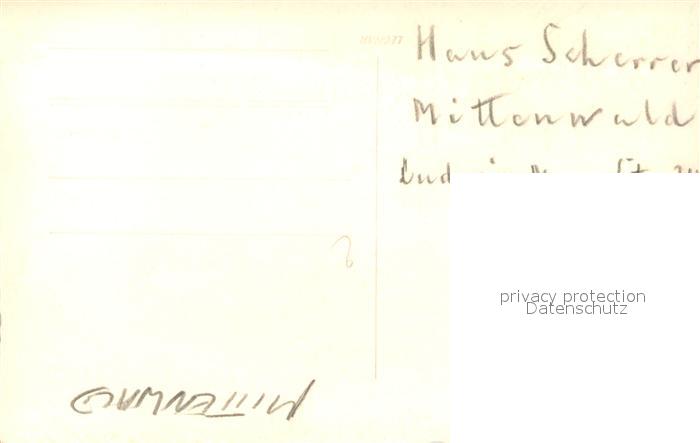 Haus Scherrer
Mittenwald
privacy protection
Datenschutz
MITTENWALD